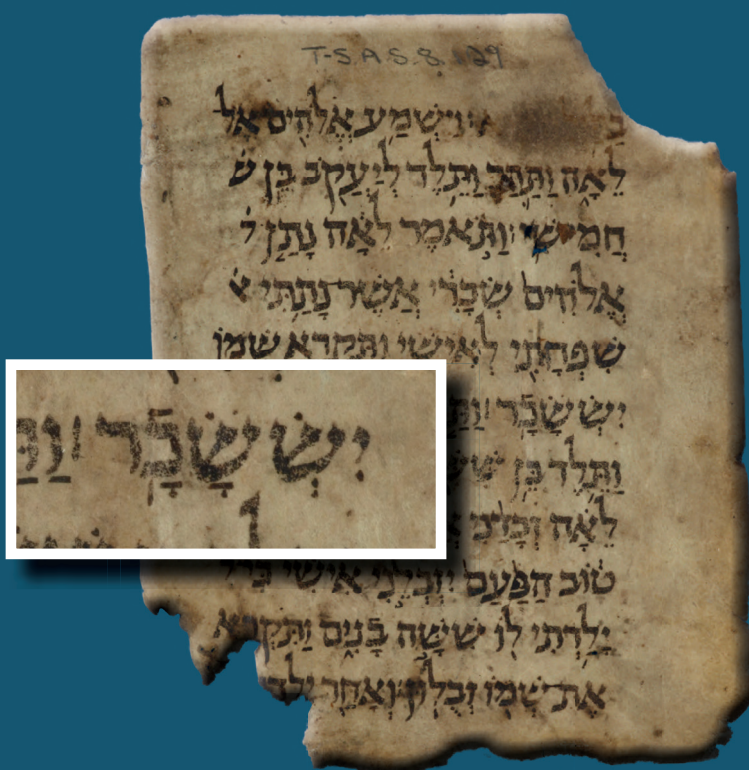 T-S A.S. 8.129
וַיִּשְׁמַע אֱלֹהִים אֶל
לֵאָה וַתַּהַר וַתֵּלֶד לְיַעֲקֹב בֵּן ש
חֲמִישִׁי וַתֹּאמֶר לֵאָה נָתַן ל
אֱלֹהִים שְׂכָרִי אֲשֶׁר נָתַתִּי א
שִׁפְחָתִי לְאִישִׁי וַתִּקְרָא שְׁמוֹ
יִשְׂשָׂכָר וַתַּ
וַתֵּלֶד בֵּן
לֵאָה
טוֹב הַפַּעַם יִזְבְּלֵנִי אִישִׁי
יָלַדְתִּי לוֹ שִׁשָּׁה בָנִים וַתִּקְרָא
אֶת שְׁמוֹ זְבֻלוּן וְאַחַר
יִשְׂשָׂכָר וַתַּ